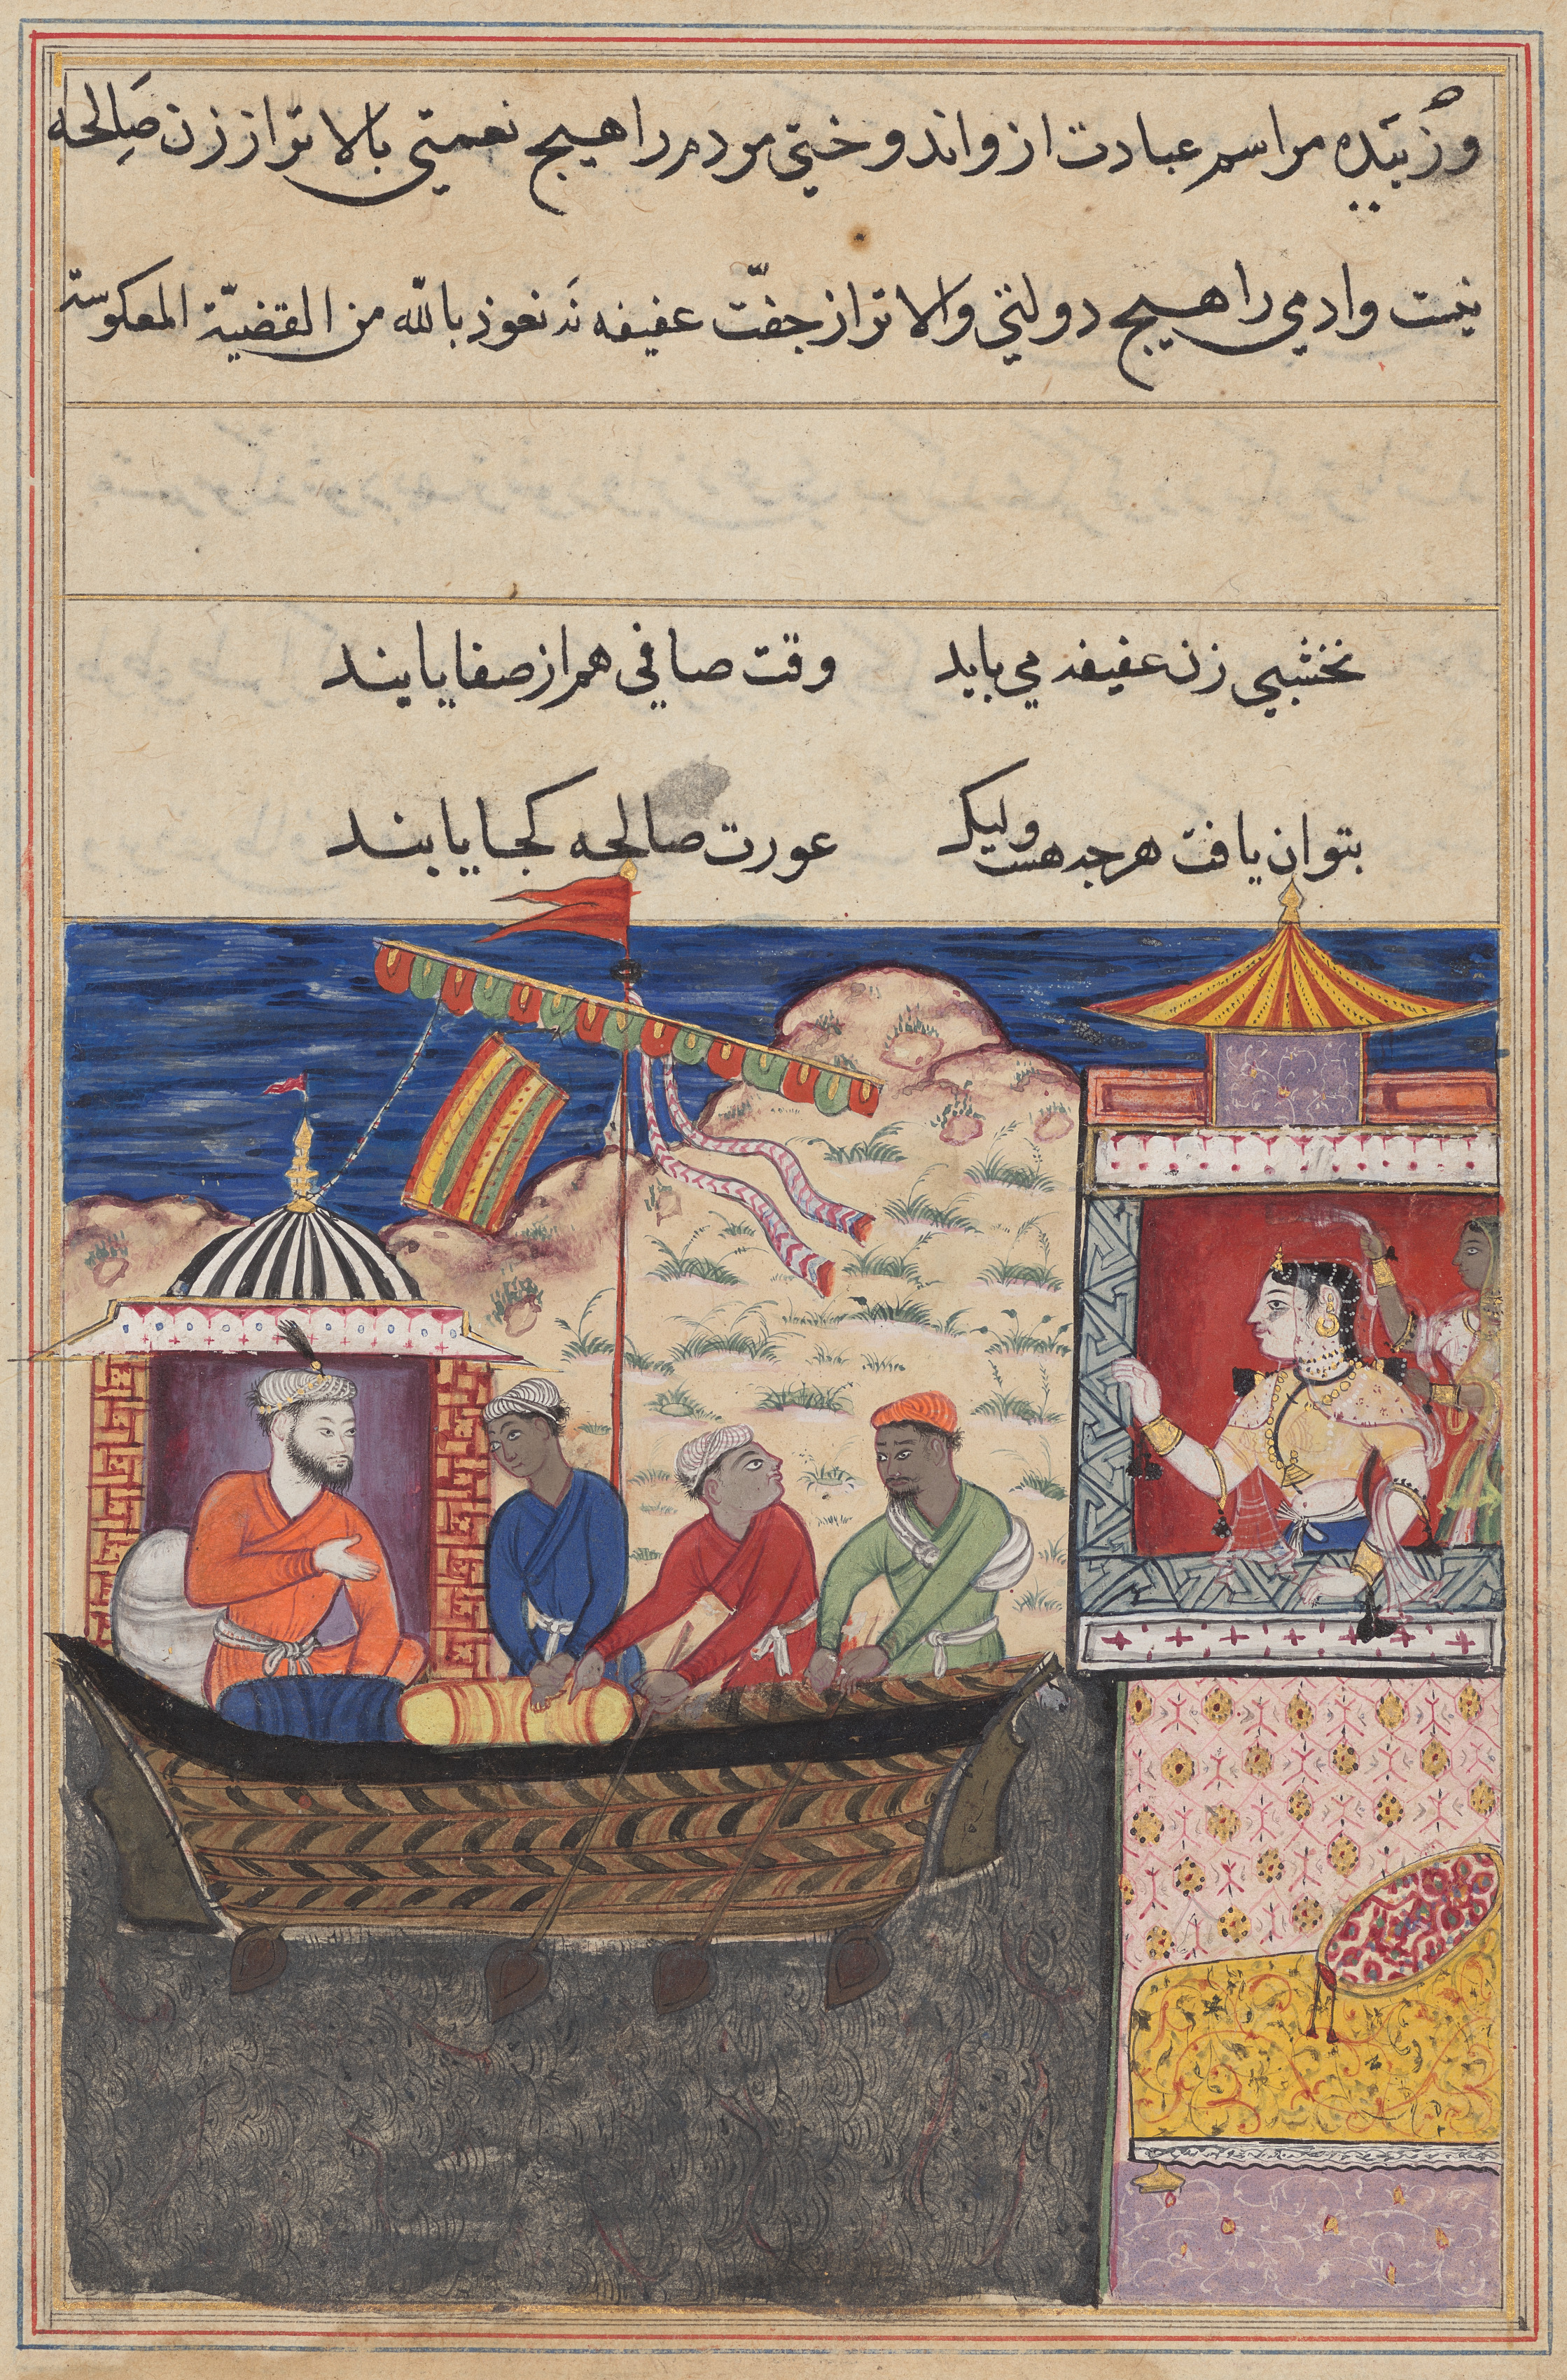 وزبیده مراسم عبادت ازو اندوختی مردم را هیچ نعمتی بالاتر از زن صالحه
نیست وادمی را هیچ دولتی والاتر از جفت عفیفه نه نعوذ بالله من القضیة المعکوسة
نخشبی زن عفیفه می باید وقت صافی هم از صفا یابند
بتوان یافت هرچه هست ولیک عورت صالحه کجا یابند